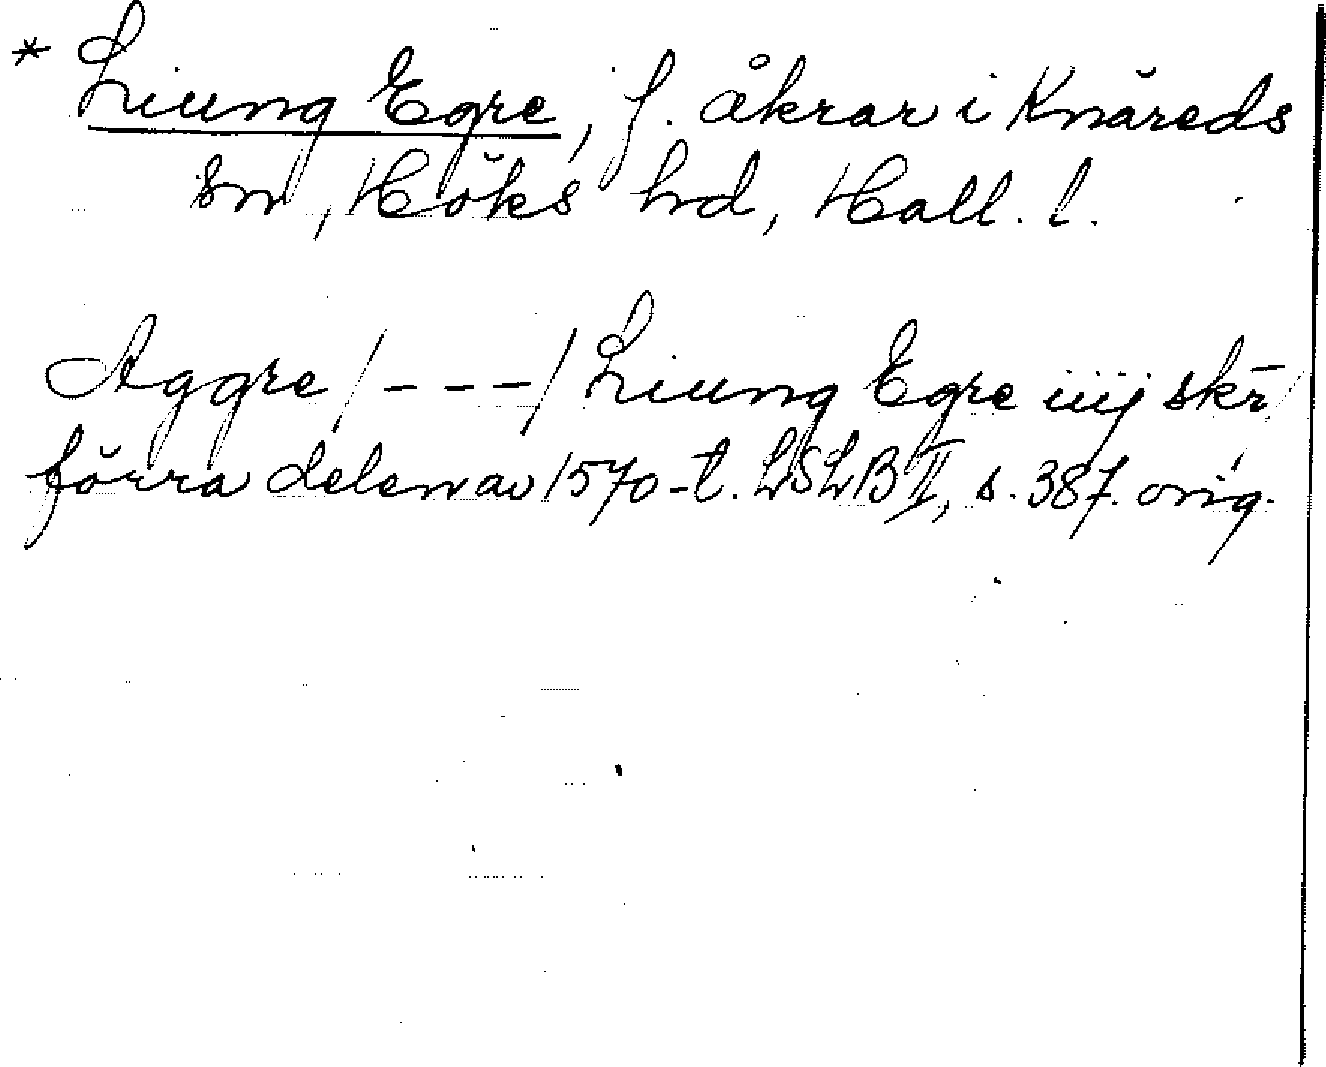 * Liung Egre, f. åkrar i Knäreds
sn, Höks hd, Hall. l.
Aggre /---/ Liung Egre iiij skr̄
förra delen av 1570-t. LSLB II, s. 387. orig.